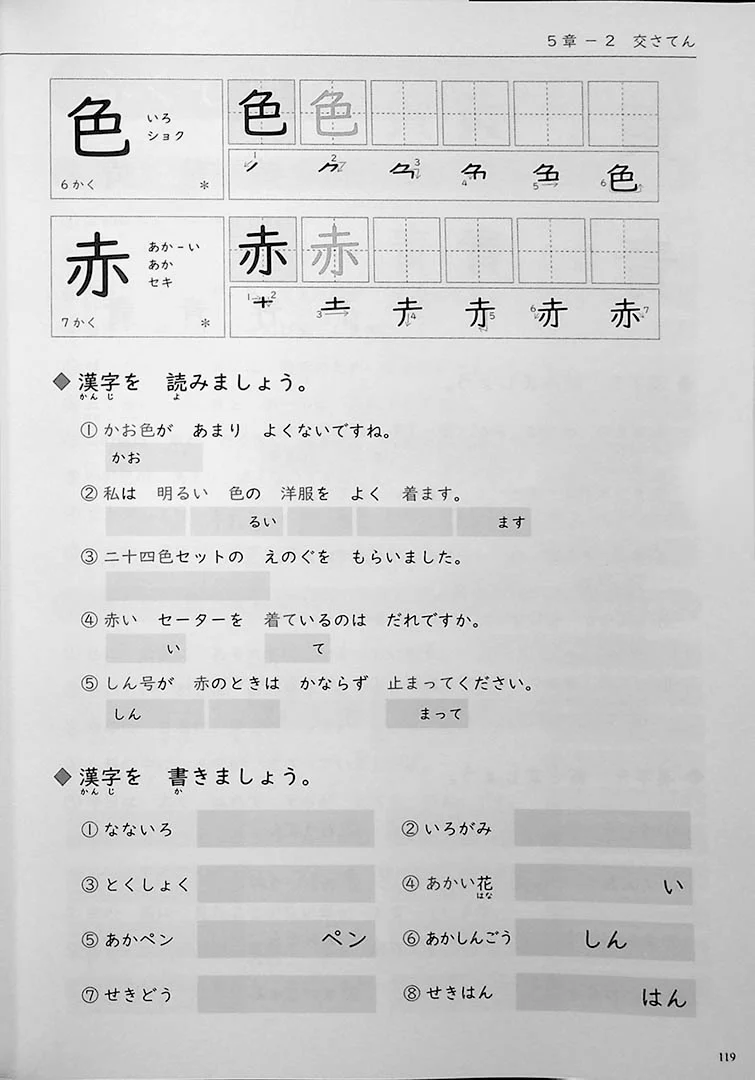 5章－2 交さてん
色 いろ ショク 6かく *
色 色
1 2 3 4 5 6 色
赤 あか－い あか セキ 7かく *
赤 赤
1 2 3 4 5 6 7 赤
◆漢字を 読みましょう。
かんじ よ
①かお色が あまり よくないですね。
かお
②私は 明るい 色の 洋服を よく 着ます。
るい ます
③二十四色セットの えのぐを もらいました。
④赤い セーターを 着ているのは だれですか。
い て
⑤しん号が 赤のときは かならず 止まってください。
しん まって
◆漢字を 書きましょう。
かんじ か
①なないろ ②いろがみ
③とくしょく ④あかい花 い
はな
⑤あかペン ペン ⑥あかしんごう しん
⑦せきどう ⑧せきはん はん
119